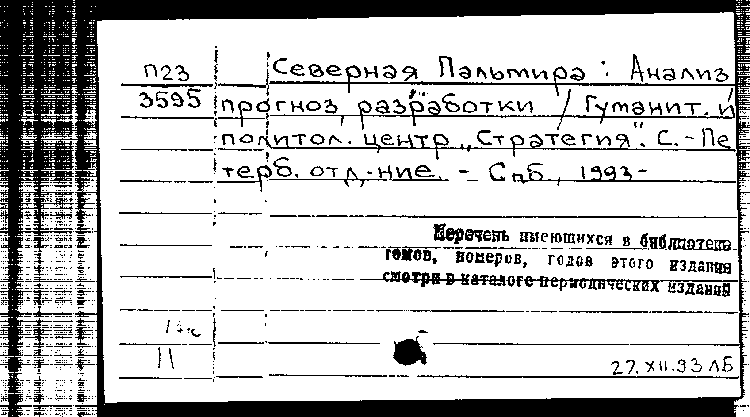 П23 Северная Пальмира : Анализ
3595 прогноз, разработки / Гуманит. и
политол. центр „Стратегия". С.-Пе
терб. отд-ние. - СпБ., 1993-
Перечень имеющихся в библиотеке
томов, номеров, годов этого издания
смотри в каталоге периодических изданий
11 27.XII.93 ЛБ